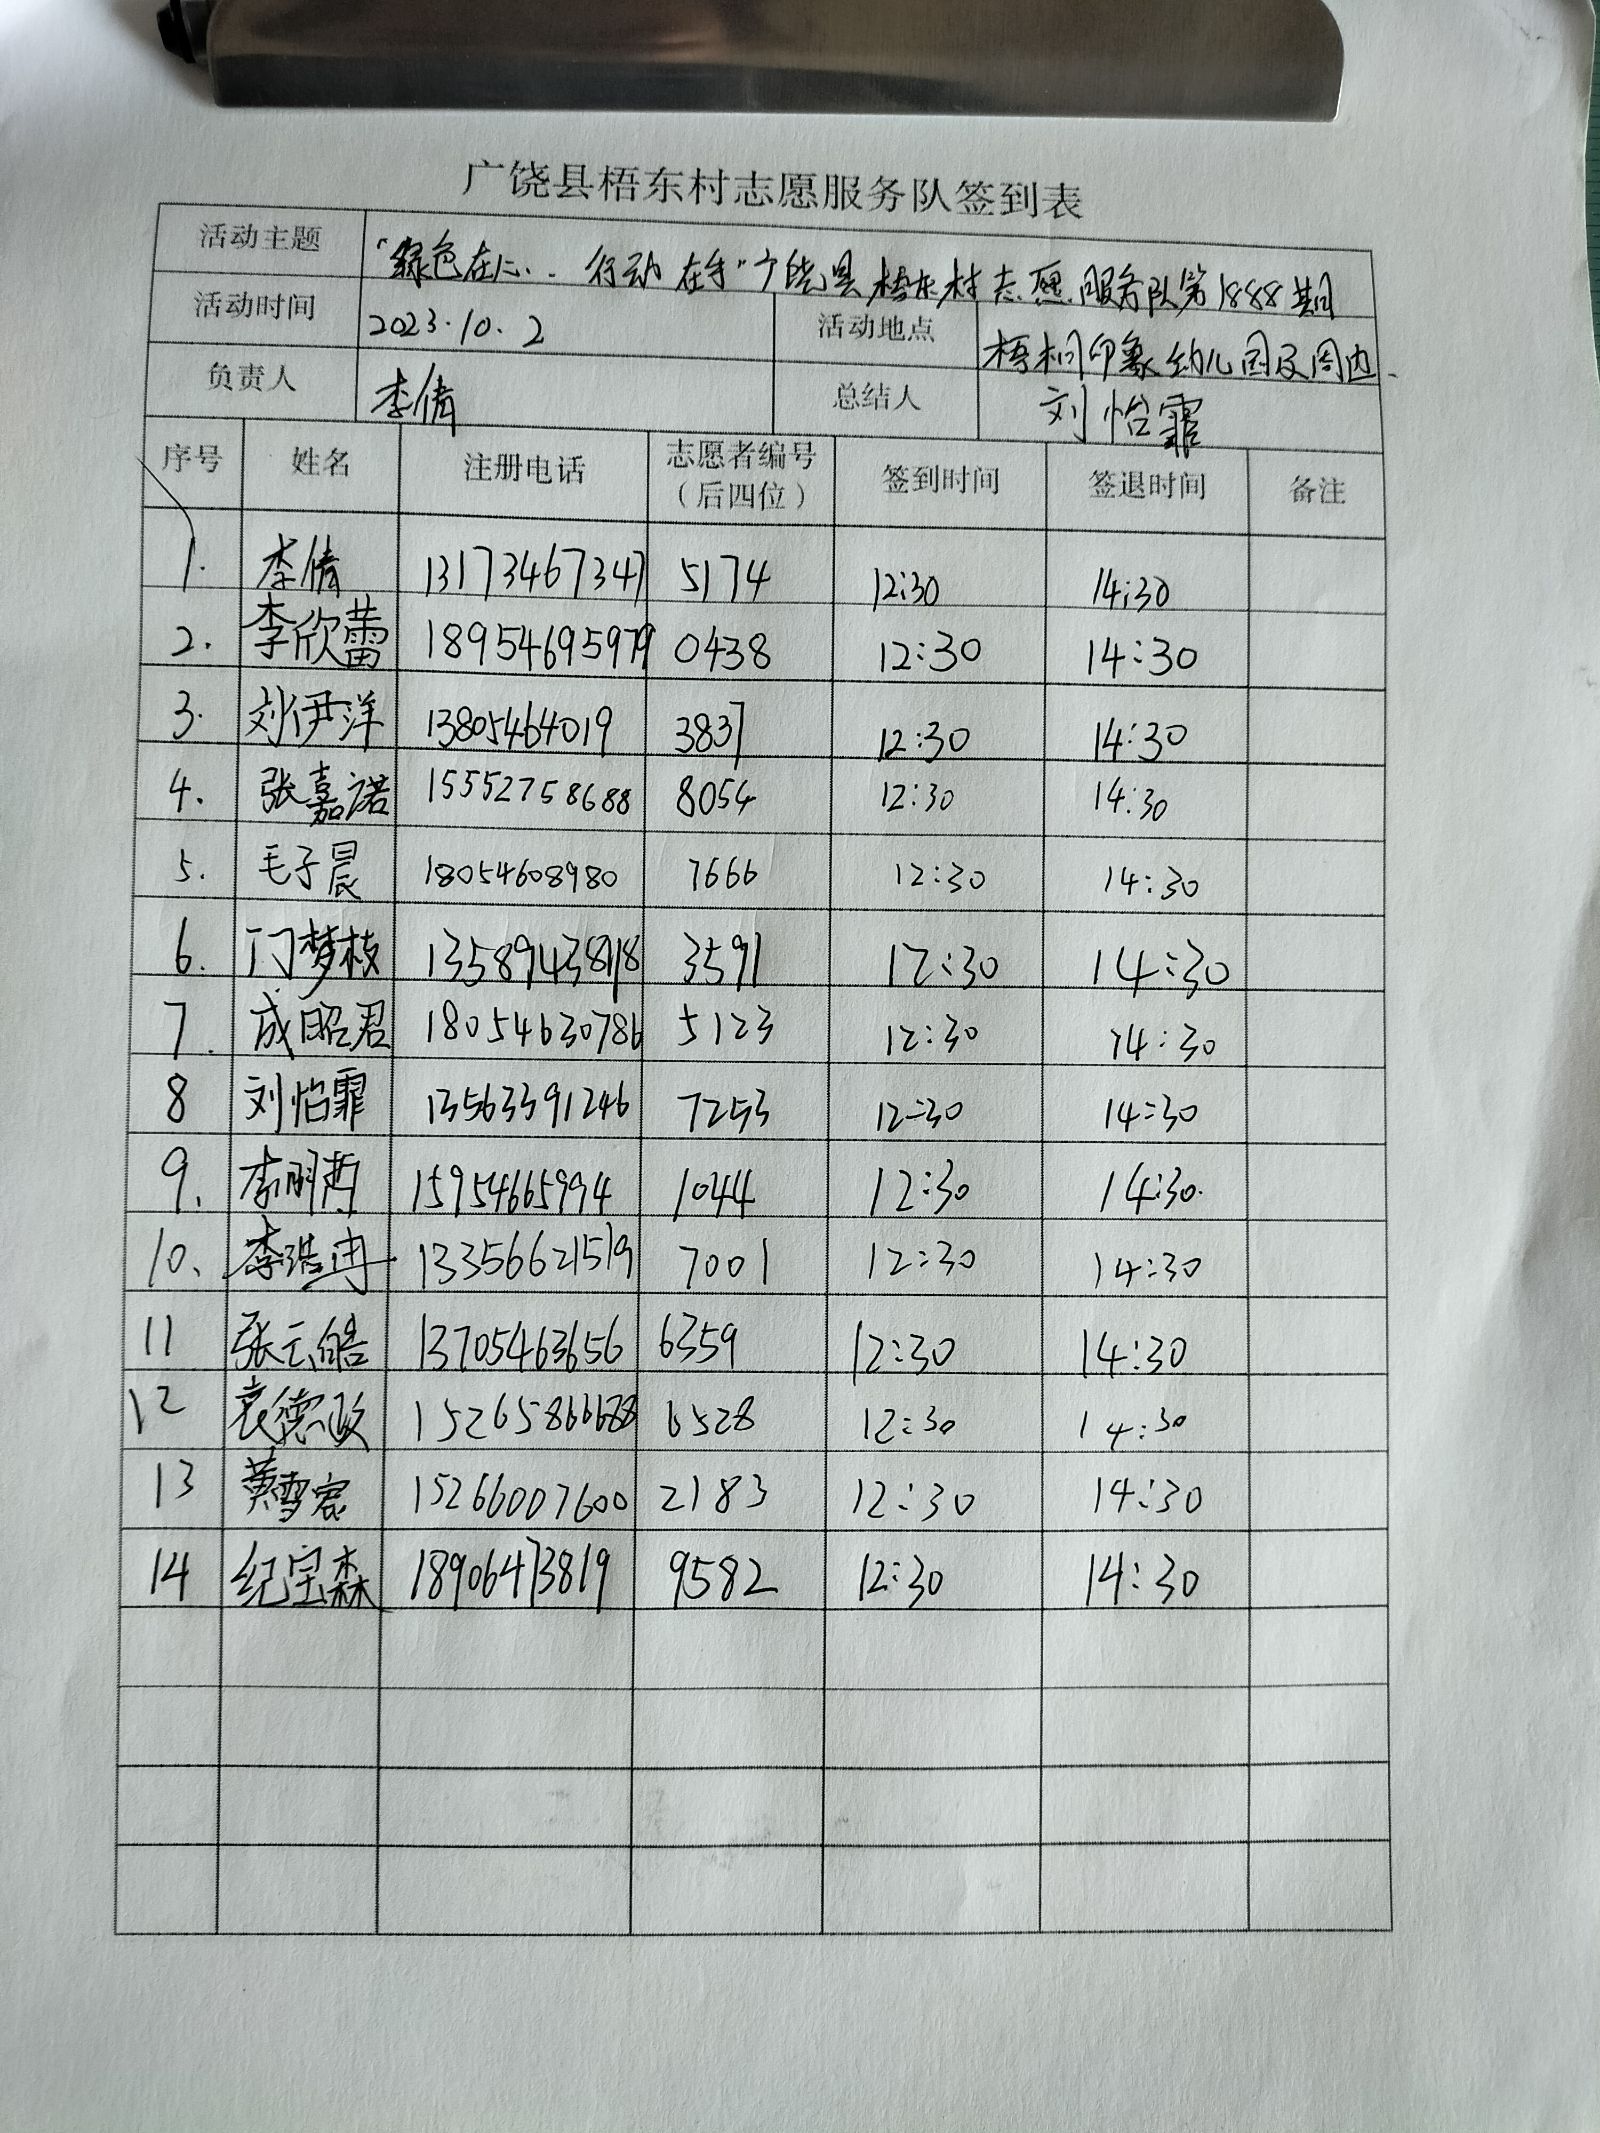 广饶县梧东村志愿服务队签到表
活动主题 "绿色在心.. 行动在手"广饶县梧东村志愿服务队第1888期
活动时间 2023.10.2 活动地点 梧桐印象幼儿园及周边
负责人 李倩 总结人 刘怡霏
序号 姓名 注册电话 志愿者编号（后四位） 签到时间 签退时间 备注
1. 李倩 13173467347 5174 12:30 14:30
2. 李欣蕾 18954695979 0438 12:30 14:30
3. 刘伊洋 13805464019 3837 12:30 14:30
4. 张嘉诺 15552758688 8054 12:30 14:30
5. 毛子晨 18054608980 7666 12:30 14:30
6. 门梦枝 13589438918 3591 12:30 14:30
7. 成昭君 18054630786 5123 12:30 14:30
8 刘怡霏 13563391246 7253 12:30 14:30
9. 李明哲 15954665994 1044 12:30 14:30.
10、 李浩冉 13356621519 7001 12:30 14:30
11 张云皓 13705463656 6359 12:30 14:30
12 袁德政 6528 12:30 14:30
13 黄雪宸 15266007600 2183 12:30 14:30
14 纪宝森 18906473819 9582 12:30 14:30